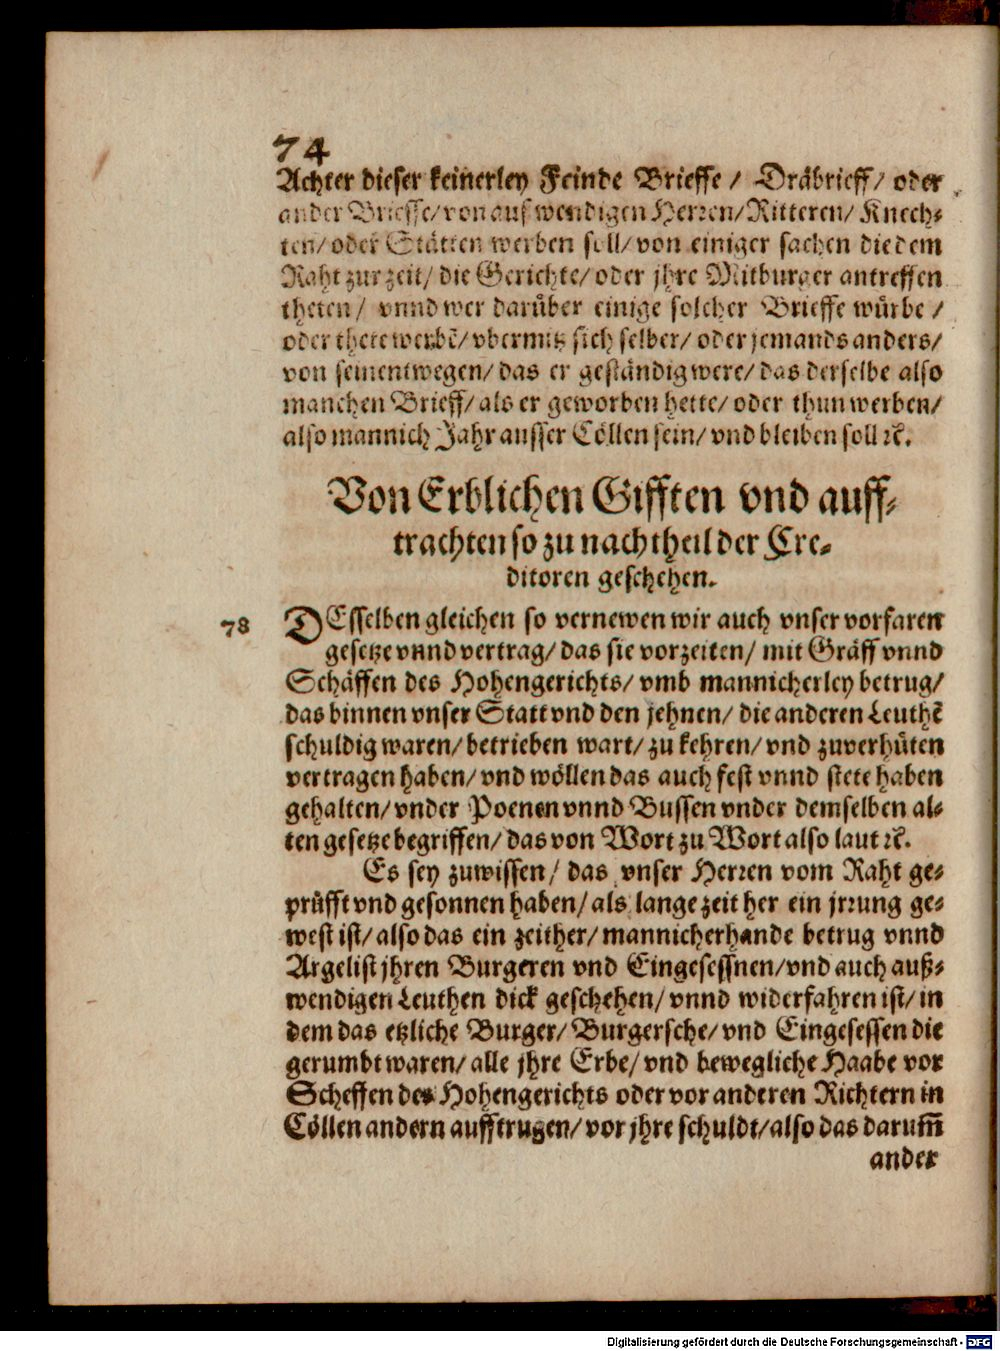 74
Achter dieser keinerley Feinde Brieffe / Dräbrieff/ oder
ander Brieffe/ von auswendigen Herren/ Ritteren/ Knech-
ten/ oder Stätten werben soll/ von einiger sachen die dem
Raht zur zeit/ die Gerichte/ oder jhre Mitburger antreffen
theten / vnnd wer darüber einige solcher Brieffe würbe /
oder thete werbē/ vbermitz sich selber/ oder jemands anders/
von seinentwegen/ das er geständig were/ das derselbe also
manchen Brieff/ als er geworben hette/ oder thun werben/
also mannich Jahr ausser Cöllen sein/ vnd bleiben soll ꝛc.
Von Erblichen Gifften vnd auff-
trachten so zu nachtheil der Cre-
ditoren geschehen.
78 DEsselben gleichen so vernewen wir auch vnser vorfaren
gesetze vnnd vertrag/ das sie vorzeiten/ mit Gräff vnnd
Schäffen des Hohengerichts/ vmb mannicherley betrug/
das binnen vnser Statt vnd den jehnen/ die anderen Leuthē
schuldig waren/ betrieben wart/ zu kehren/ vnd zuverhüten
vertragen haben/ vnd wöllen das auch fest vnnd stete haben
gehalten/ vnder Poenen vnnd Bussen vnder demselben al-
ten gesetze begriffen/ das von Wort zu Wort also laut ꝛc.
Es sey zuwissen/ das vnser Herren vom Raht ge-
prüfft vnd gesonnen haben/ als lange zeit her ein jrrung ge-
west ist/ also das ein zeither/ mannicherhande betrug vnnd
Argelist jhren Burgeren vnd Eingesessnen/ vnd auch auß-
wendigen Leuthen dick geschehen/ vnnd widerfahren ist/ in
dem das etzliche Burger/ Burgersche/ vnd Eingesessen die
gerumbt waren/ alle jhre Erbe/ vnd bewegliche Haabe vor
Scheffen des Hohengerichts oder vor anderen Richtern in
Cöllen andern aufftrugen/ vor jhre schuldt/ also das darum̄
ander
Digitalisierung gefördert durch die Deutsche Forschungsgemeinschaft - DFG